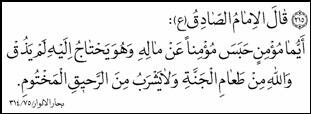 ﴿٢١٥﴾ قَالَ الْاِمَامُ الصَّادِقُ(ع):
أَيُّمَا مُؤْمِنٍ حَبَسَ مُؤْمِناً عَنْ مَالِهِ وَهُوَ يَحْتَاجُ اِلَيْهِ لَمْ يَذُقْ
وَاللهِ مِنْ طَعَامِ الْجَنَّةِ وَلاَيَشْرَبُ مِنَ الرَّحِيقِ الْمَخْتُومِ.
بحار الانوار/٧٥/٣١٤